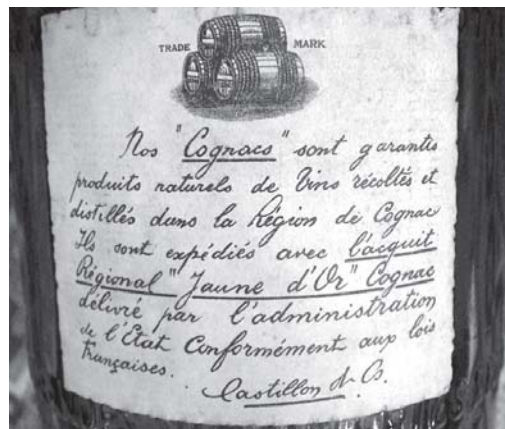 TRADE MARK
Nos "Cognacs" sont garantis
produits naturels de Vins récoltés et
distillés dans la Région de Cognac
Ils sont expédiés avec l'acquit
Régional "Jaune d'Or" Cognac
délivré par l'administration
de l'État Conformément aux lois
Françaises.
Castillon & Co.